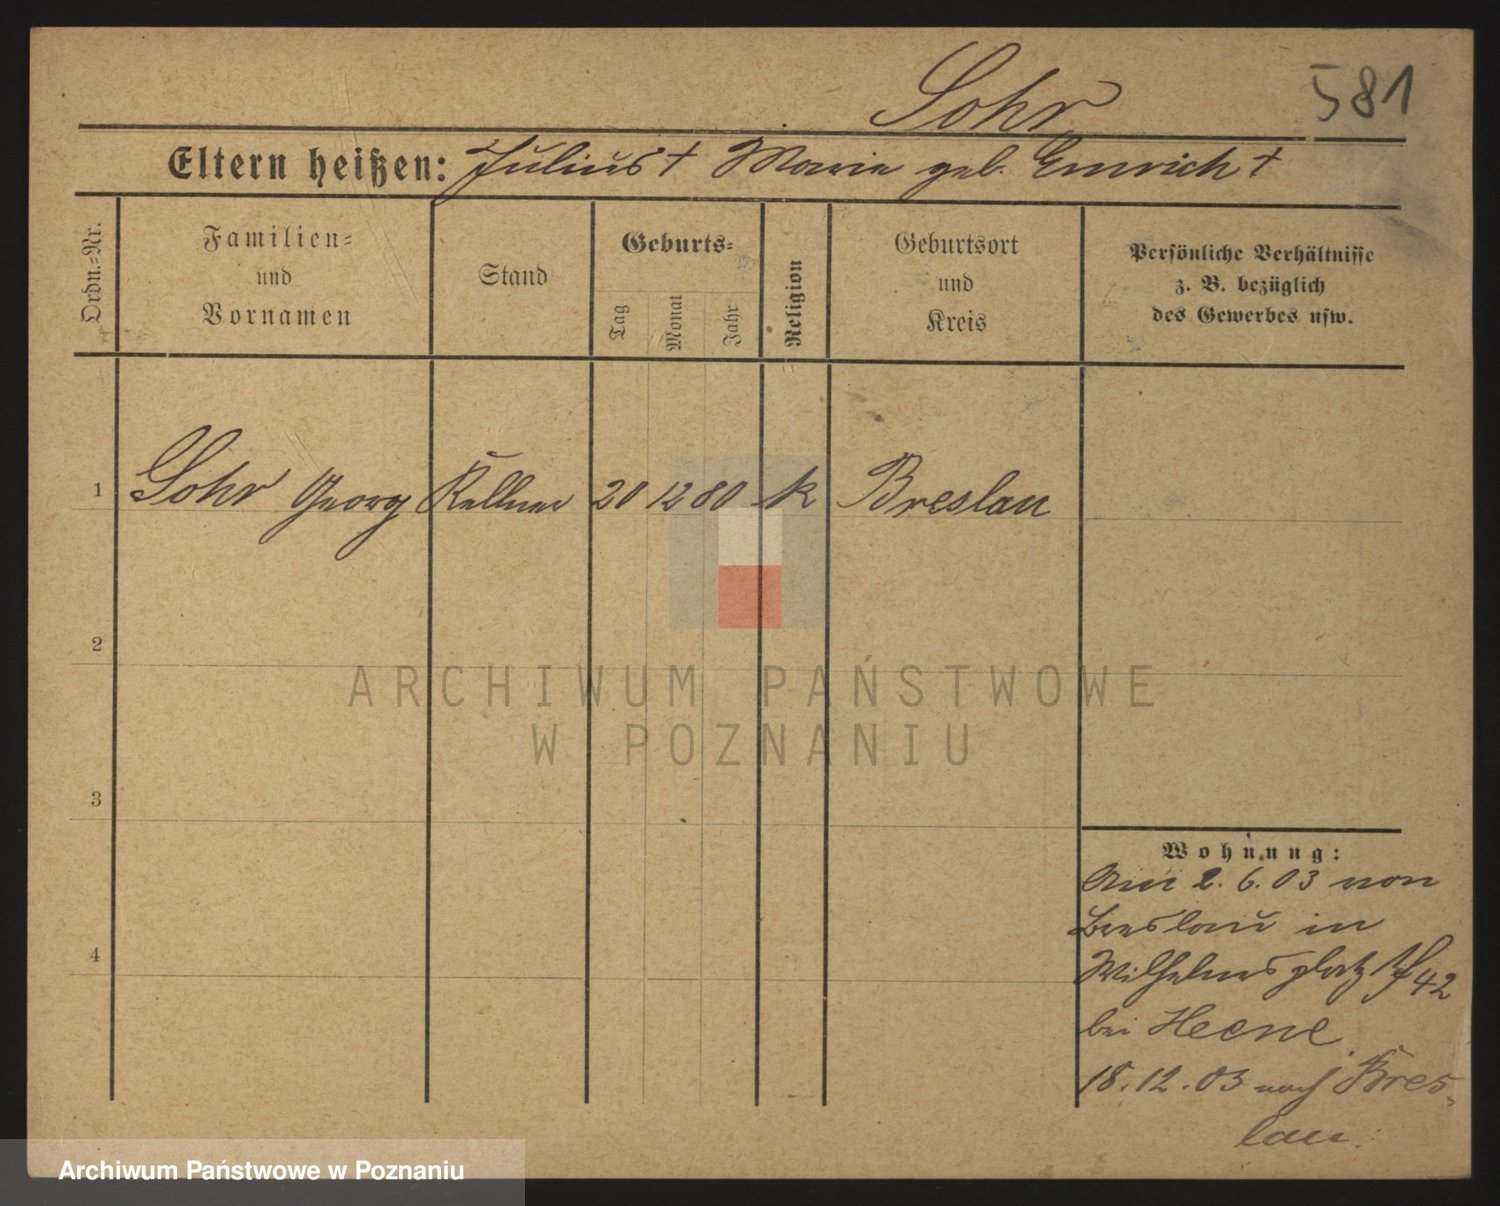 Sohr 581
Eltern heißen: Julius † Marie geb. Emrich †
Ordn.-Nr.
Familien-
und
Vornamen
Stand
Geburts-
Tag
Monat
Jahr
Religion
Geburtsort
und
Kreis
Persönliche Verhältnisse
z. B. bezüglich
des Gewerbes usw.
1 Sohr Georg Kellner 20 12 80 k Breslau
2
3
4
Wohnung:
Am 2. 6. 03 von
Breslau in
Wilhelmsplatz 42
bei Heene
18. 12. 03 nach Bres-
lau.
ARCHIWUM PAŃSTWOWE
W POZNANIU
Archiwum Państwowe w Poznaniu